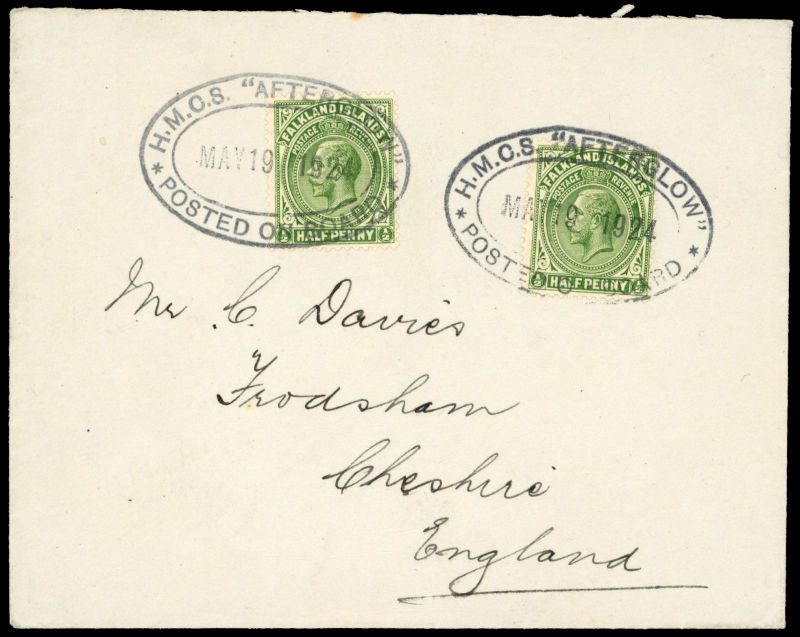 H.M.C.S. "AFTERGLOW"
MAY 19 1924
* POSTED ON BOARD *
FALKLAND ISLANDS
POSTAGE REVENUE
½ HALF PENNY ½
H.M.C.S. "AFTERGLOW"
MAY 19 1924
* POSTED ON BOARD *
FALKLAND ISLANDS
POSTAGE REVENUE
½ HALF PENNY ½
Mr C. Davies
Frodsham
Cheshire
England